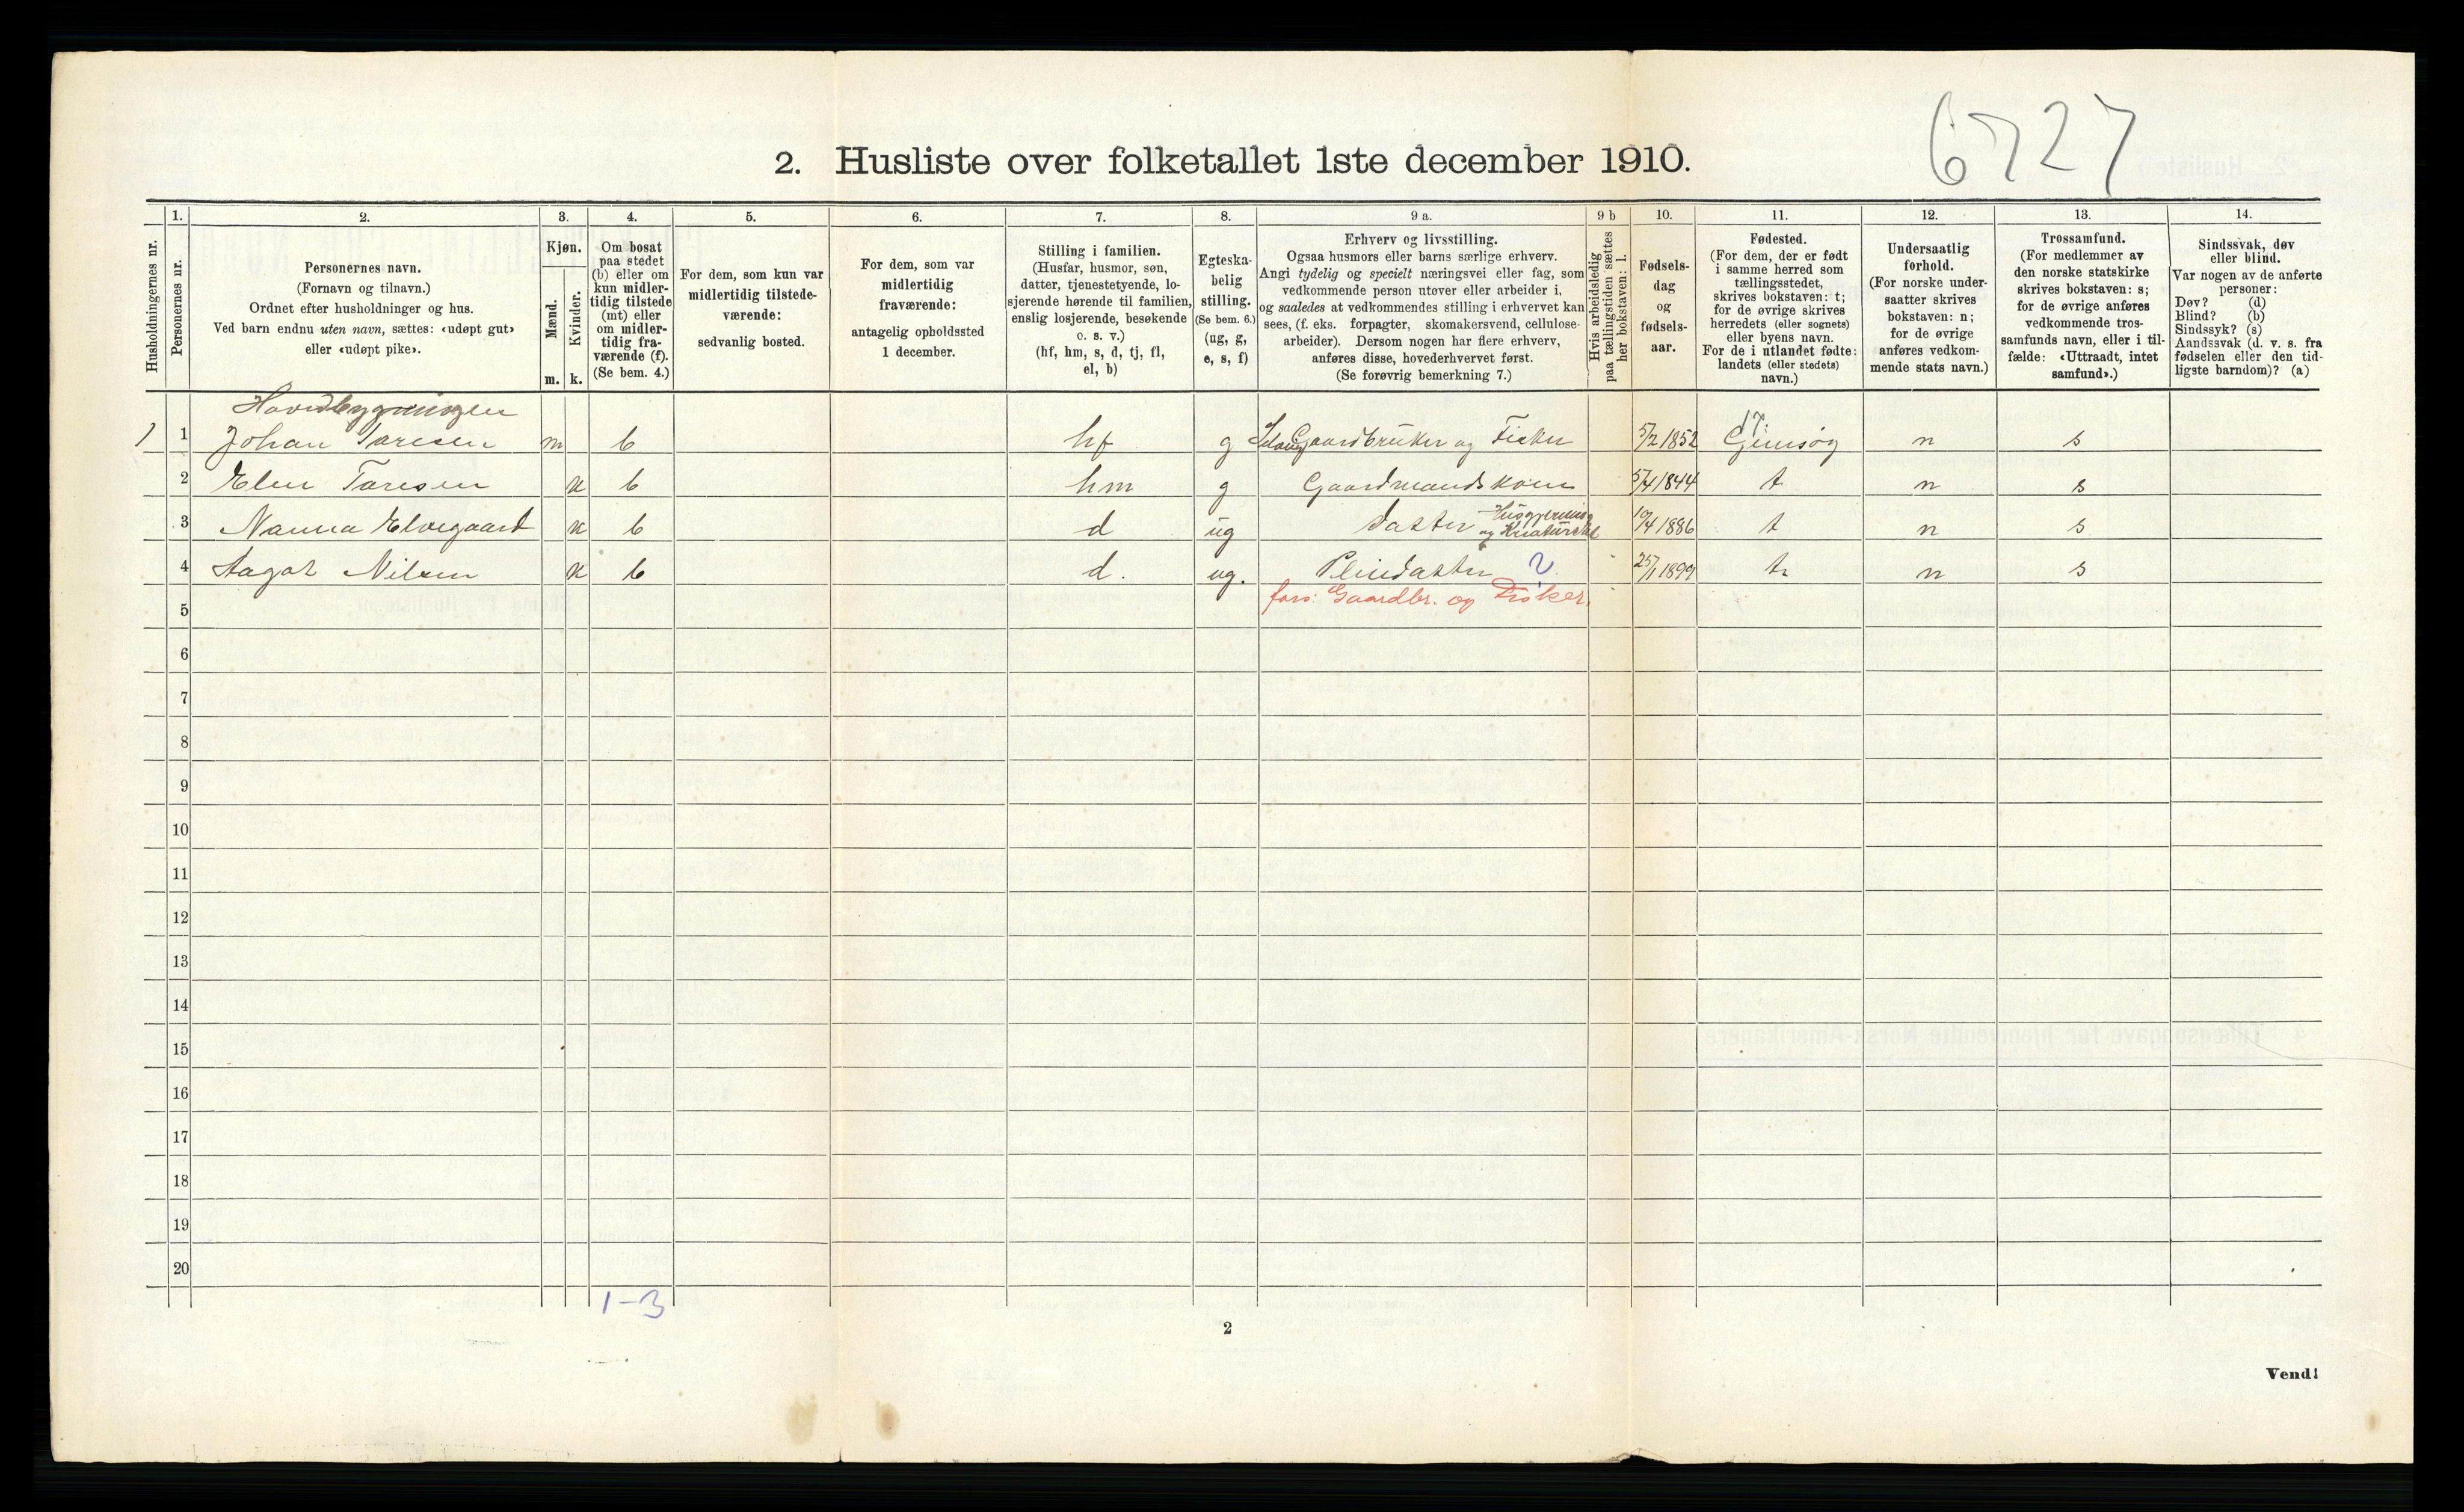 6727
2. Husliste over folketallet 1ste december 1910.
Husholdningernes nr.
1.
Personernes nr.
2.
Personernes navn.
(Fornavn og tilnavn.)
Ordnet efter husholdninger og hus.
Ved barn endnu uten navn, sættes: «udøpt gut»
eller «udøpt pike».
3.
Kjøn.
Mænd.
Kvinder.
m. k.
4.
Om bosat
paa stedet
(b) eller om
kun midler-
tidig tilstede
(mt) eller
om midler-
tidig fra-
værende (f).
(Se bem. 4.)
5.
For dem, som kun var
midlertidig tilstede-
værende:
sedvanlig bosted.
6.
For dem, som var
midlertidig
fraværende:
antagelig opholdssted
1 december.
7.
Stilling i familien.
(Husfar, husmor, søn,
datter, tjenestetyende, lo-
sjerende hørende til familien,
enslig losjerende, besøkende
o. s. v.)
(hf, hm, s, d, tj, fl,
el, b)
8.
Egteska-
belig
stilling.
(Se bem. 6.)
(ug, g,
e, s, f)
9 a.
Erhverv og livsstilling.
Ogsaa husmors eller barns særlige erhverv.
Angi tydelig og specielt næringsvei eller fag, som
vedkommende person utøver eller arbeider i,
og saaledes at vedkommendes stilling i erhvervet kan
sees, (f. eks. forpagter, skomakersvend, cellulose-
arbeider). Dersom nogen har flere erhverv,
anføres disse, hovederhvervet først.
(Se forøvrig bemerkning 7.)
9 b
Hvis arbeidsledig
paa tællingstiden sættes
her bokstaven: l.
10.
Fødsels-
dag
og
fødsels-
aar.
11.
Fødested.
(For dem, der er født
i samme herred som
tællingsstedet,
skrives bokstaven: t;
for de øvrige skrives
herredets (eller sognets)
eller byens navn.
For de i utlandet fødte:
landets (eller stedets)
navn.)
12.
Undersaatlig
forhold.
(For norske under-
saatter skrives
bokstaven: n;
for de øvrige
anføres vedkom-
mende stats navn.)
13.
Trossamfund.
(For medlemmer av
den norske statskirke
skrives bokstaven: s;
for de øvrige anføres
vedkommende tros-
samfunds navn, eller i til-
fælde: «Uttraadt, intet
samfund».)
14.
Sindssvak, døv
eller blind.
Var nogen av de anførte
personer:
Døv? (d)
Blind? (b)
Sindssyk? (s)
Aandssvak (d. v. s. fra
fødselen eller den tid-
ligste barndom)? (a)
Hovedbygningen
1 1 Johan Taresen m b hf g Gaardbruker og Fisker 5/2 1852 Gimsøy n s
2 Elen Taresen k b hm g Gaardmandskone 5/4 1844 t n s
3 Nanna Elvegaard k b d ug datter Husgjerning og Kreaturstel 19/4 1886 t n s
4 Aagot Nilsen k b d. ug. Pleiedatter ? 25/1 1899 t n s
5 fors: Gaardbr. og Fisker.
6
7
8
9
10
11
12
13
14
15
16
17
18
19
20
1-3
2
Vend!